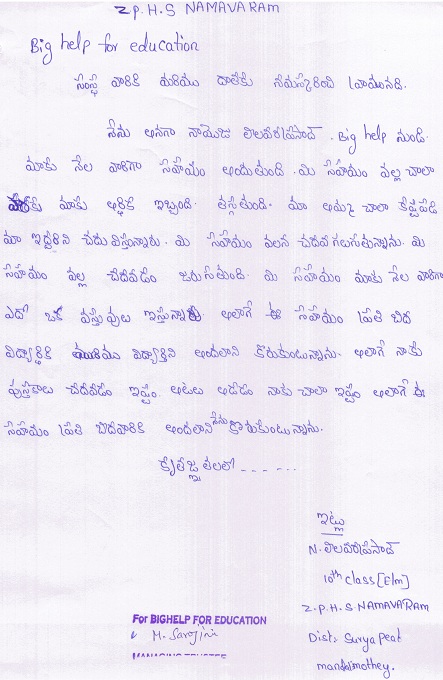 Z.P.H.S NAMAVARAM
Big help for education
సంస్థ వారికి మరియు దాతలకు నమస్కరించి వ్రాయునది.
నేను అనగా నాయొక్క లీలవరప్రసాద్. Big help నుండి
మాకు నెల వారిగా సహాయం అందుతుంది. మి సహాయం వల్ల చాలా
మాకు ఆర్థిక ఇబ్బంది తగ్గుతుంది. మా అమ్మ చాలా కష్టపడి
మా ఇద్దరిని చదువిస్తున్నారు. మి సహాయం వలన చదవగలుగుతున్నాను. మి
సహాయం వల్ల చదవడం జరుగుతుంది. మి సహాయం మాకు నెల వారిగా
ఎదో ఒక వస్తువులు ఇస్తున్నారు అలాగే ఈ సహాయం ప్రతి బిద
విద్యార్థికి మరియు విద్యార్థిని అందలాని కోరుకుంటున్నాను. అలాగే నాకు
పుస్తకాలు చదవడం ఇష్టం. ఆటలు ఆడడం నాకు చాలా ఇష్టం అలాగే ఈ
సహాయం ప్రతి బిదవారికి అందలాని నేను కొరుకుంటున్నాను.
కృతజ్ఞతలతో ------
ఇట్లు
N. లీలవరప్రసాద్
10th class [E/m]
Z.P.H.S NAMAVARAM
Dist: Suryapeat
mandal mothey.
For BIGHELP FOR EDUCATION
M. Sarojini
MANAGING TRUSTEE